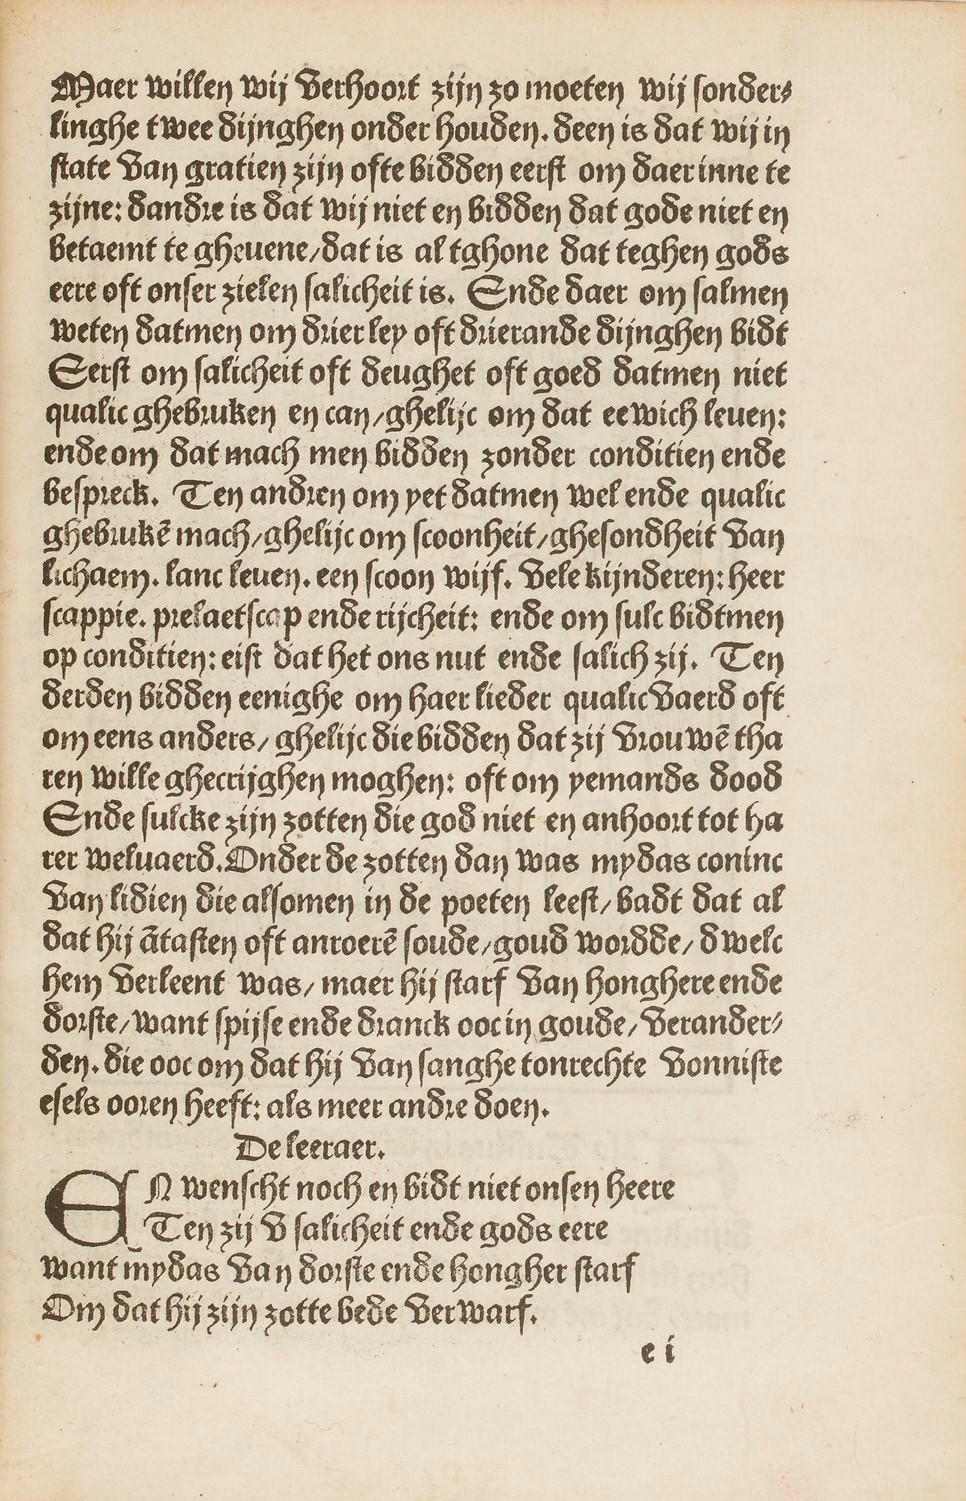 Maer willen wij verhoort zijn zo moeten wij sonder⸗
linghe twee dijnghen onder houden. deen is dat wij in
state van gratien zijn ofte bidden eerst om daer inne te
zijne: dandre is dat wij niet en bidden dat gode niet en
betaemt te gheuene/dat is al tghone dat teghen gods
eere oft onser zielen salicheit is. Ende daer om salmen
weten datmen om drier ley oft drierande dijnghen bidt
Eerst om salicheit oft deughet oft goed datmen niet
qualic ghebruken en can/ghelijc om dat eewich leuen:
ende om dat mach men bidden zonder conditien ende
bespreck. Ten andren om yet datmen wel ende qualic
ghebrukē mach/ghelijc om scoonheit/ghesondheit van
lichaem. lanc leuen. een scoon wijf. vele kijnderen: heer
scappie. prelaetscap ende rijcheit: ende om sulc bidtmen
op conditien: eist dat het ons nut ende salich zij. Ten
derden bidden eenighe om haer lieder qualicvaerd oft
om eens anders/ ghelijc die bidden dat zij vrouwē tha
ren wille ghecrijghen moghen: oft om yemands dood
Ende sulcke zijn zotten die god niet en anhoort tot ha
rer weluaerd. Onder de zotten dan was mydas coninc
van lidien die alsomen in de poeten leest/ badt dat al
dat hij ātasten oft anroerē soude/goud wordde/ dwelc
hem verleent was/ maer hij starf van honghere ende
dorste/want spijse ende dranck ooc in goude/verander⸗
den. die ooc om dat hij van sanghe tonrechte vonniste
esels ooren heeft: als meer andre doen.
De leeraer.
EN wenscht noch en bidt niet onsen heere
Ten zij v salicheit ende gods eere
want mydas van dorste ende hongher starf
Om dat hij zijn zotte bede verwarf.
e i